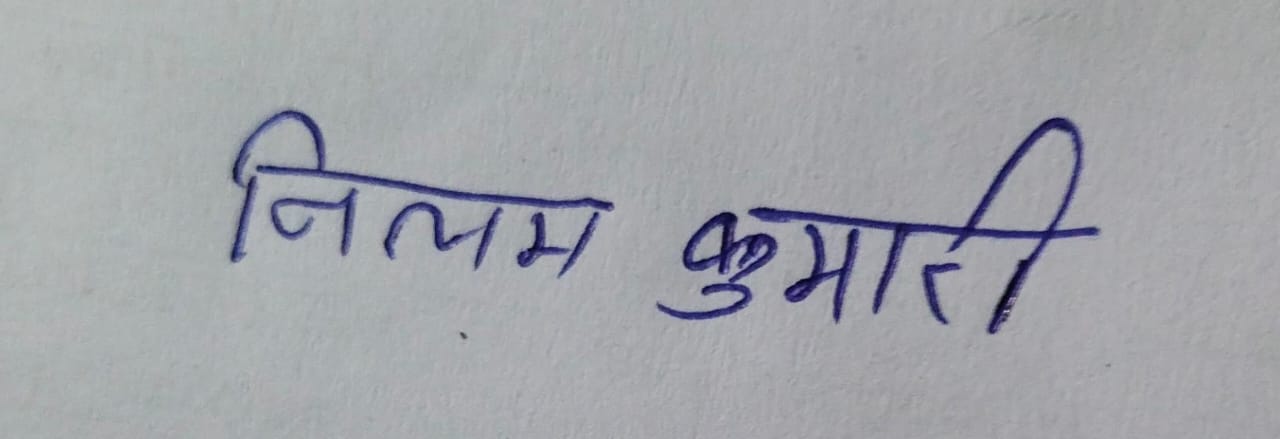 निलम कुमारी